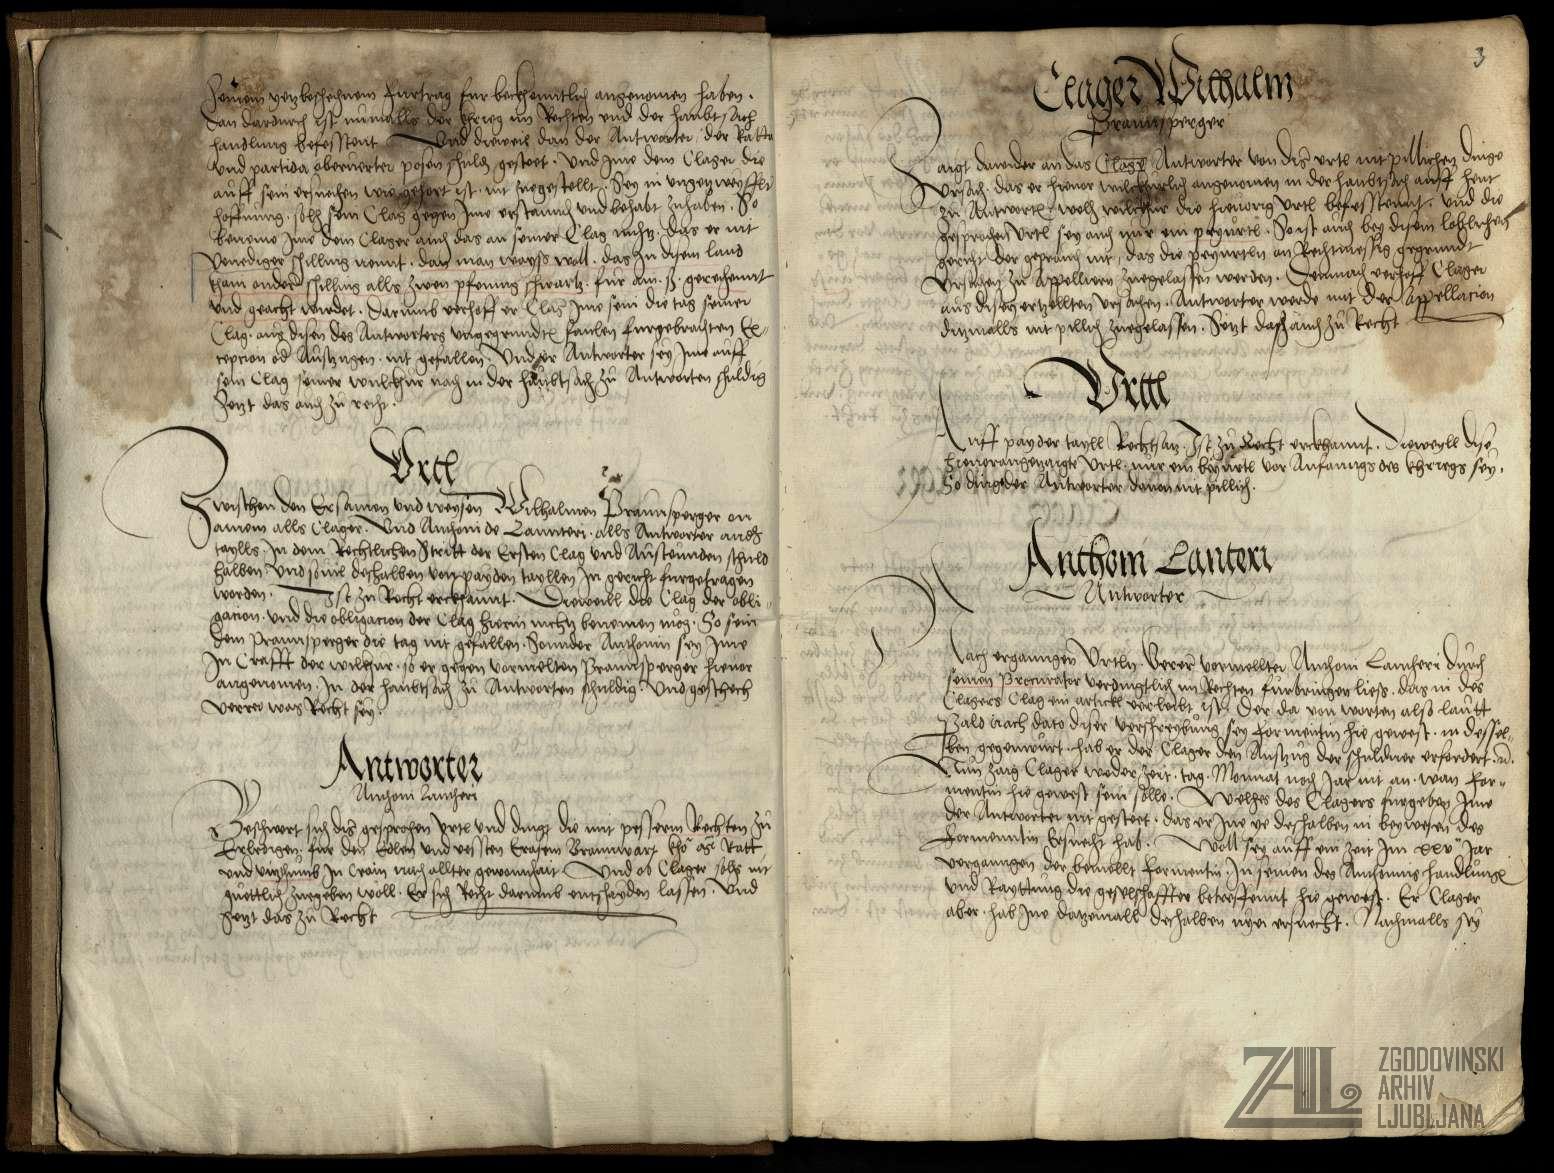 seinem yezbeschehnem furtrag fur bekhenntlich angenomen haben.
Dan dardurch ist nimalls der khrieg im Rechten und der haubtsach
handlung befesstent Und dieweil dan der Antworter, der
und partida obernenter posen schuldig gesteet. Und Ime dem Clager die
auff sein ersuechen wie gehort ist nit zuegestellt. Sey in ungezweyfflter
hoffnung, solh sein Clag gegen Ime erstannden und behabt zuhaben. So
beneme Ime dem Clager auch das an seiner Clag nichtz. Das er nit
Venediger schilling nennt. dan man wayss woll. das in disem land
kham ander schilling alls zwen pfening schwartz. fur ain .ß. gerechennt
und geacht wirdet. Darumb verhoff er Clager Ime sein die tag seiner
Clag. aus disen des Antworters ungegrundten faulen furgebrachten Ex-
ception od Auszugen. nit gefallen. Und er Antworter sey Ime auff
sein Clag seiner wilkhur nach in der haubtsach zu Antworten schuldig
Setzt das auch zu recht.
Urtl
Zwischen den Ersamen und weysen Wilhalmen Praunsperger an
ainem alls Clager. Und Anthoni de Lannteri. alls Antworter anders
taylls. In dem Rechtlichen Stritt der Ersten Clag und Austeunden schuld
halben. Und sovil deshalben von payden tayllen In gericht furgetragen
worden. Ist zu Recht erckhannt. Dieweill die Clag der obli-
gacion. und die obligacion der Clag hierin nichtz benemen mog. So sein
dem Praunsperger die tag nit gefallen. Sonnder Anthonin sey Ime
In Crafft der wilkhur. so er gegen vormelten Praunsperger hievor
angenomen. In der haubtsach zu Antworten schuldig. Und geschech
verrer was Recht sey.
Antworter
Anthoni Lantheri
Beschwert sich dits gesprochen Urtl und dingt die mit pesserm Rechten zu
Erledigen. fur den Edlen und vessten Erasem Braunwart Rö. Ratt
und vitzthumb In Crain nach allter gewonhait. Und ob Clager solhs nit
guettlich zuegeben woll. Er sich Recht darumb entschayden lassen. Und
Setzt das zu Recht
3
Clager Wilhalm
Praunsperger
Zaigt dawider an das Clage Antworter von dits urtl nit pillichen dinge
Ursach. das er hievor wilkhurlich angenomen in der haubtsach auff heut
zu Antworten. welh wilkhur die hievorig Urtl befesstennt. und die
gesprochen Urtl sey auch nur ein peyurtl. So ist auch bey disem loblichen
gericht der geprauch nit, das die peyurtln an Rechtmessig gegrundt
Ursachen zu Appelliern zuegelassen werden. Demnach verhoff Clager
aus disen ertzellten ursachen. Antworter werde mit der Appellacion
ditzmalls nit pillich zuegelassen. Setzt das auch zu Recht
Urttl
Auff payder tayll Rechtsatz. Ist zu Recht erckhannt. Dieweyll dise
hievorangezaigte Urtl. nur ein beyurtl vor Anfanngs des khriegs sey.
So dingt der Antworter davon nit pillich.
Anthoni Lanteri
Antworter
Nach erganngen Urtln. Verer vormellter Anthoni Lantheri durch
seinen Procurator verdingtlich im Rechten furbringen liess. das in des
Clagers Clag ein artickl verleibt ist. Der da von worten also lautt
Pald nach dato diser verschreybung sey Formentin hie gewest. in dessel-
ben gegenwurt. hab er der Clager den Auszug der schuldner erfordert. u.
Nun zaig Clager weder zeit. tag. Monnat noch Jar nit an. wan For-
mentin hie gewest sein solle. Welhes des Clagers furgeben Ime
der Antworter nit gesteet. das er Ime ye deshalben in beywesen des
Formentin Ersuecht hab. Woll sey auff ein zeit Im xxv Jar
verganngen der bemellt Formentin. In seinen des Anthonius handlungen
und Rayttung die geselschaffter betreffennt hie gewest. Er Clager
aber. hab Ine datzemall deshalben nye ersuecht. Nachmalls sey
ZAL
ZGODOVINSKI
ARHIV
LJUBLJANA